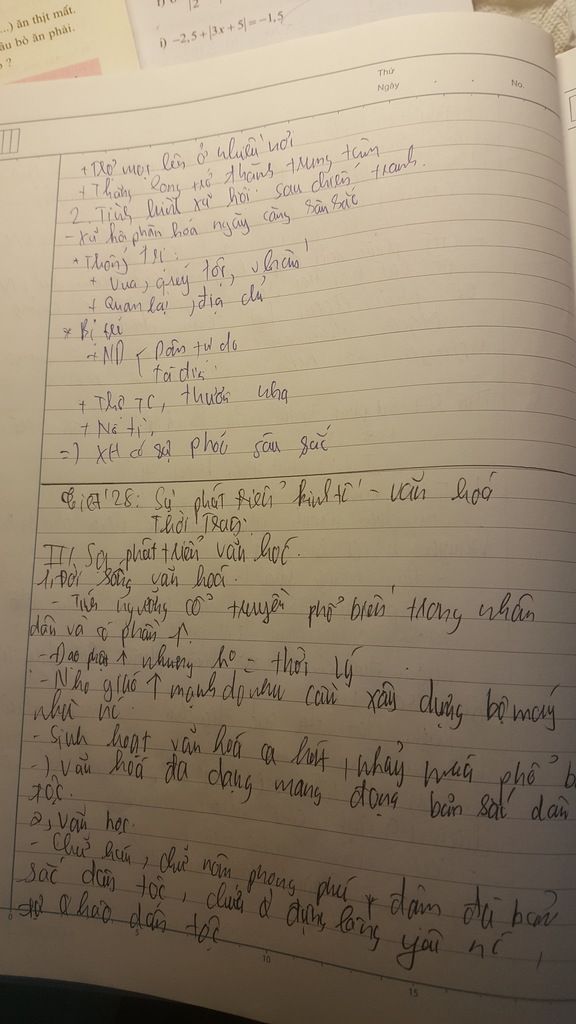 ...) ăn thịt mất.
âu bò ăn phải.
?
i) −2,5+|3x+5|=−1,5
Thứ
Ngày
No.
+ Chợ mọc lên ở nhiều nơi
+ Thăng long trở thành trung tâm
2. Tình hình xã hội sau chiến tranh.
- Xã hội phân hóa ngày càng sâu sắc
* Thống trị:
+ Vua, quý tộc,
+ Quan lại, địa chủ
* Bị trị
+ ND { Dân tự do
tá điền
+ Thợ TC, thươn nha
+ Nô tì,
=) XH có sự phâ sâu sắc
Tiết 28: Sự phát triển kinh tế - văn hoá
Thời Trần
II/ Sự phát triển văn hoá.
1, Đời sống văn hoá.
- Tín ngưỡng cổ truyền phổ biến trong nhân
dân và có phần ↑.
- Đạo phật ↑ nhưng ko = thời lý
- Nho giáo ↑ mạnh do nhu cầu xây dựng bộ máy
nhà nc
- Sinh hoạt văn hoá ca hát, nhảy múa phổ b
-) Văn hoá đa dạng mang đậm bản sắc dân
tộc.
2, Văn học.
- Chữ hán, chữ nôm phong phú đậm đà bản
sắc dân tộc, chứa đựng lòng yêu nc,
tự hào dân tộc
10
15